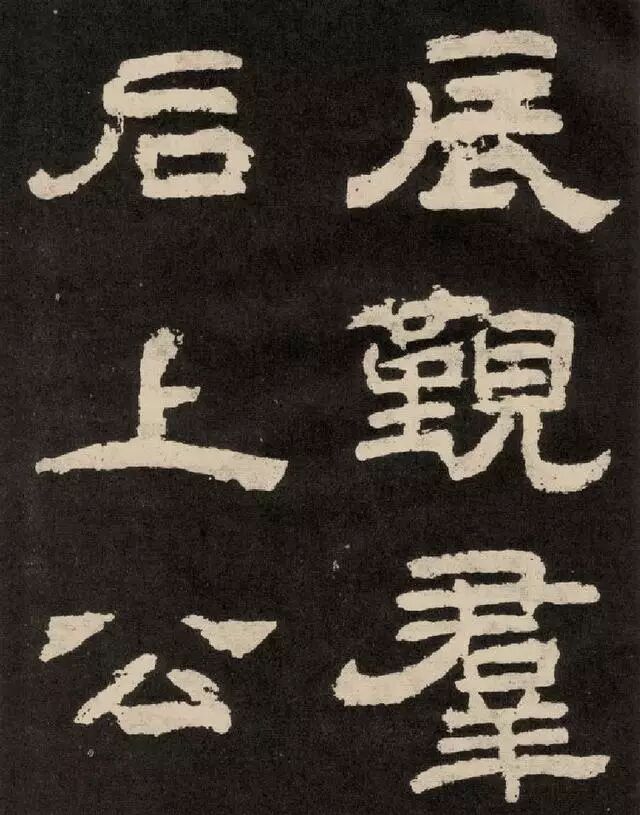 辰觐羣
后上公